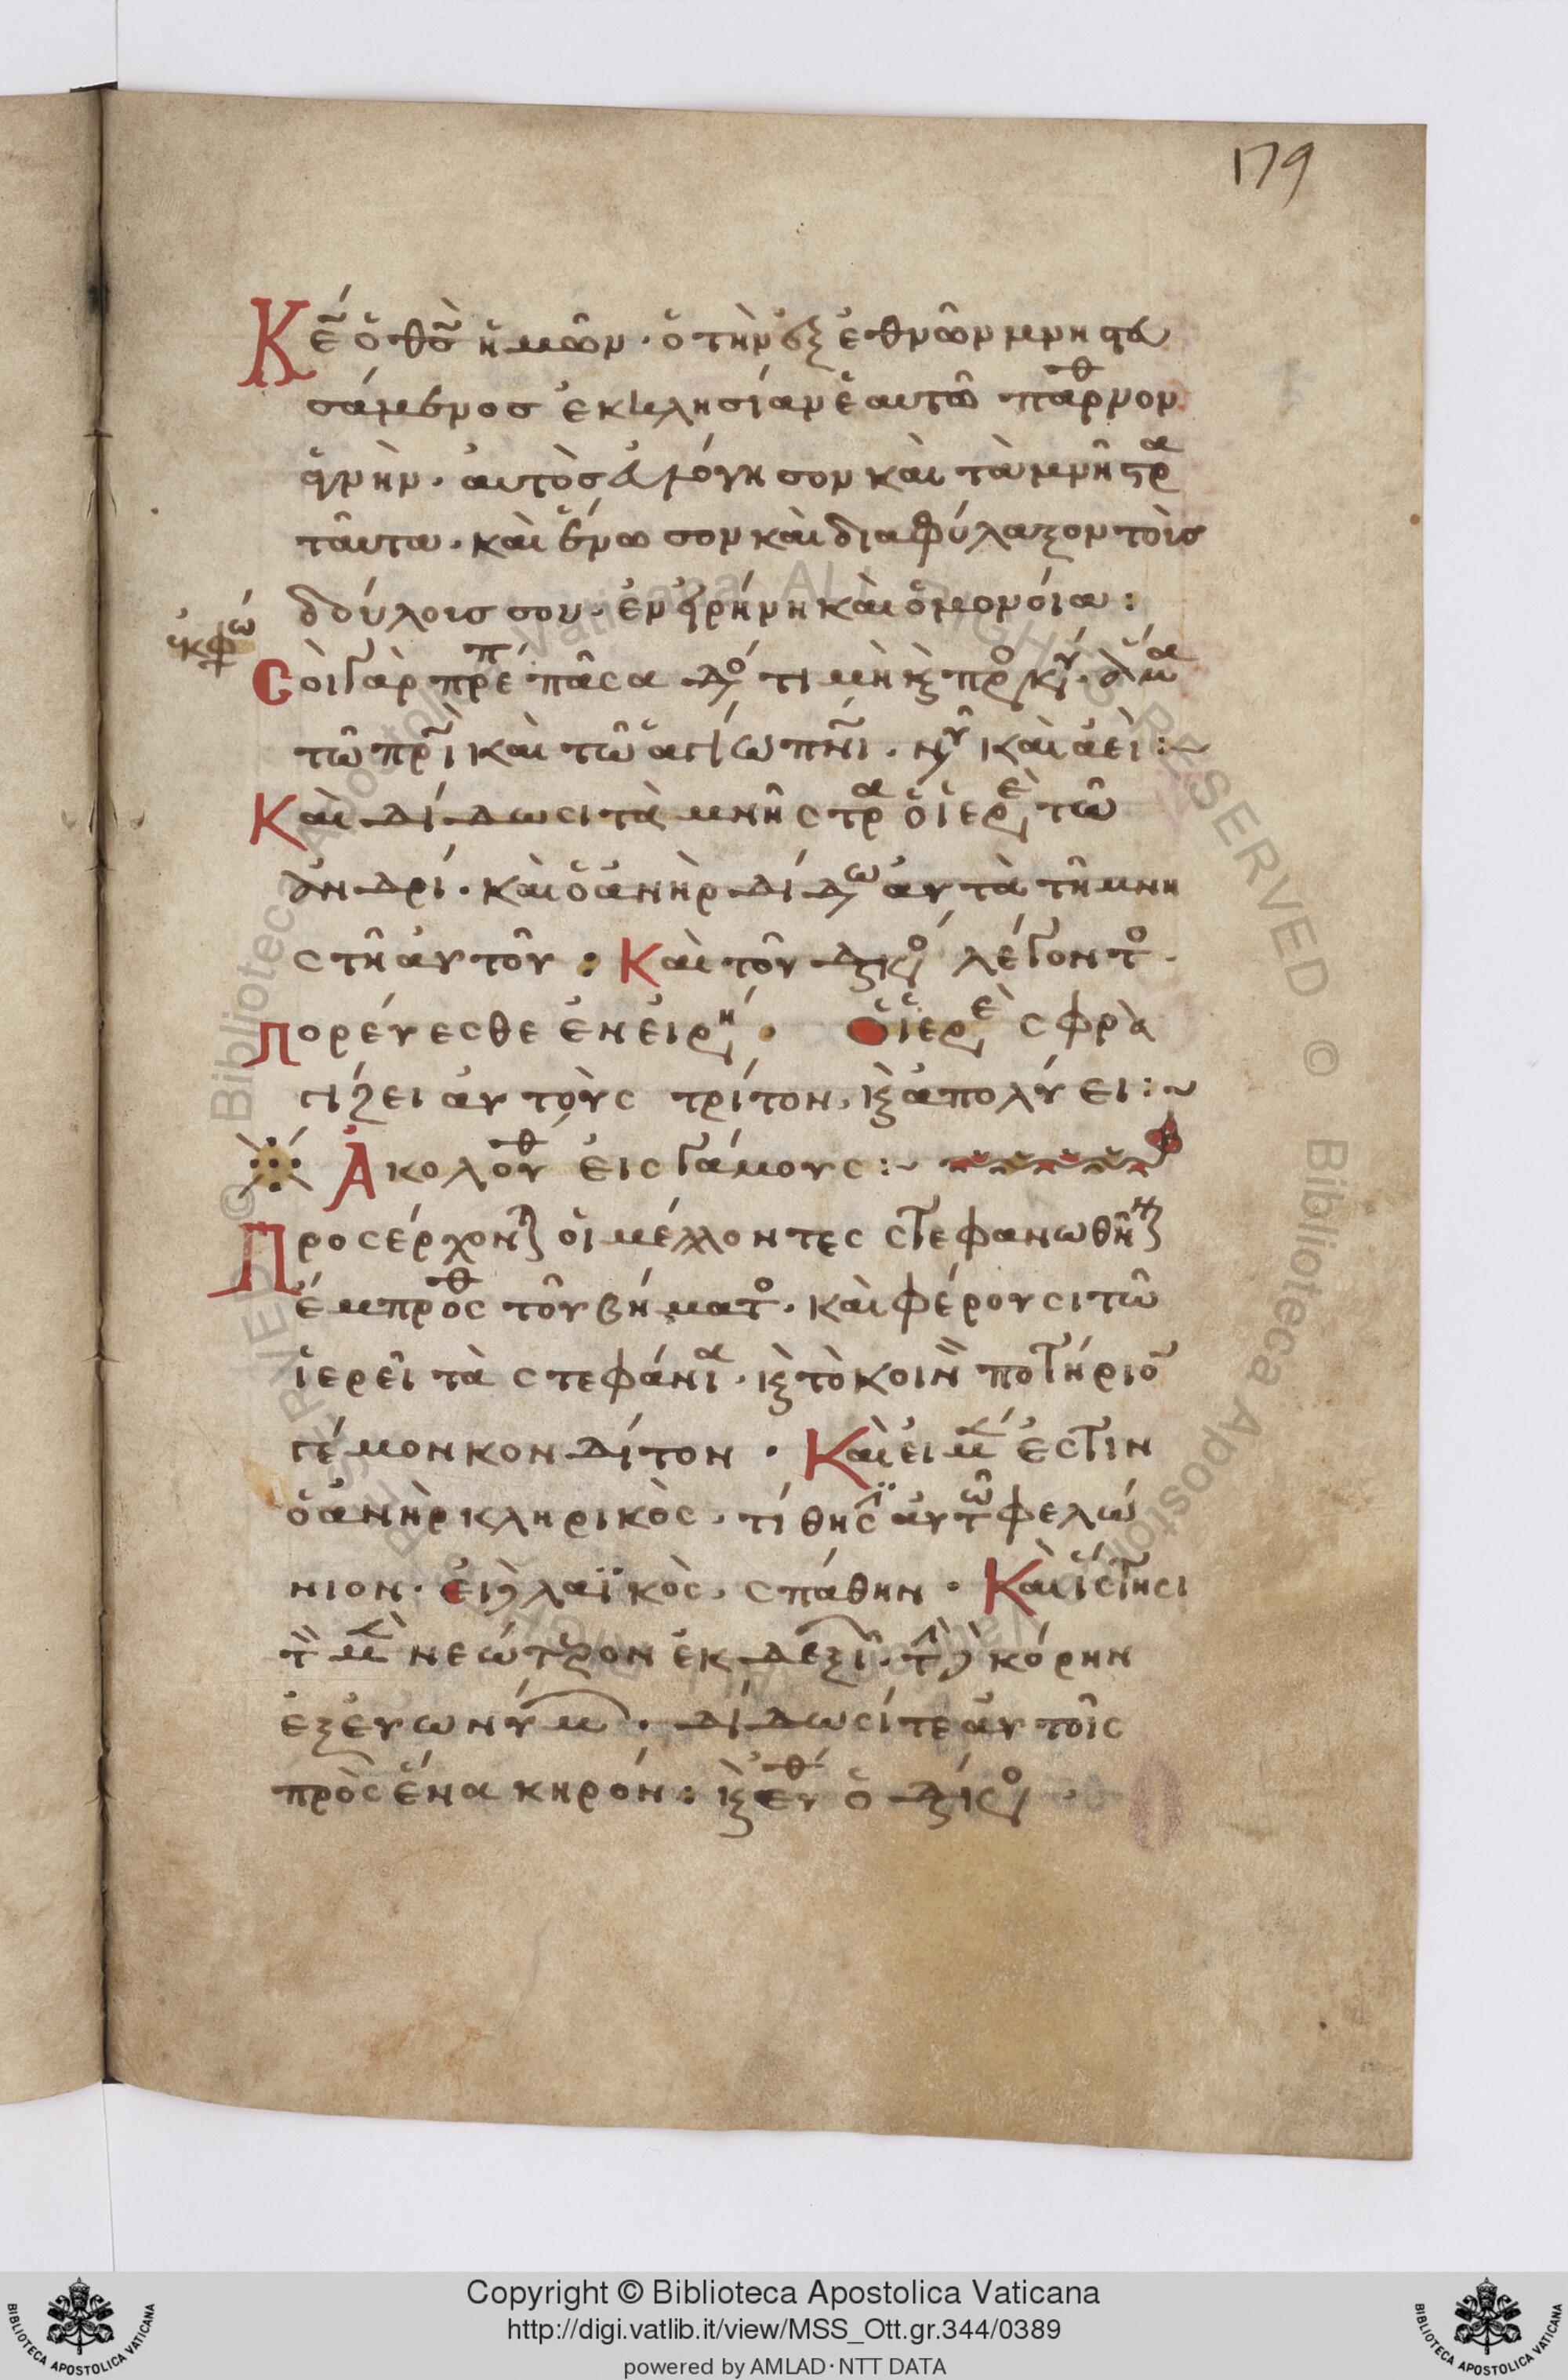 179
Κε̄ ὁ θς̄ ἡμῶν· ὁ τὴν ἐξ ἐθνῶν μνηστευ
σάμενος ἐκκλησίαν ἑαυτῶ παρθνον
ἁγνὴν· αὐτὸς εὐλόγησον καὶ τὰ μνῆστρα
ταῦτα· καὶ ἕνωσον καὶ διαφύλαξον τοὺς
δούλους σου· ἐν εἰρήνη καὶ ὁμονοία:
ἐκφώ
Σοὶ γὰρ πρέπ πᾶσα δό τιμὴ κ̀ προσκύ· ἅμα
τῶ πρῑ καὶ τῶ ἁγίω πνῑ· νῦ καὶ ἀεὶ:~
Καὶ δίδωσι τὰ μνῆστρα ὁ ἱερεὺ τῶ
ἀνδρί· καὶ ὁ ἀνὴρ δίδω αὐτὰ τῆ μνη
στῆ αὐτοῦ: Καὶ τοῦ διακό λέγοντο·
Πορεύεσθε ἐν εἰρή· Ὁ ἱερεὺ σφρα
γίζει αὐτοὺς τρίτον· κ̀ ἀπολύει:~
Ἀκολουθ εἰς γάμους:~
Προσέρχονται οἱ μέλλοντες στεφανωθῆναι
ἔμπροσθ τοῦ βήματο· καὶ φέρουσι τῶ
ἱερεῖ τὰ στεφάνια· κ̀ τὸ κοινὸν ποτήριον
γέμον κονδίτον· Καὶ εἰ μέν ἐστιν
ὁ ἀνὴρ κληρικὸς· τίθησιν αὐτῶ φελώ
νιον· εἰ δὲ λαϊκὸς· σπάθην· Καὶ ἵστησι
τὸν μὲν νεώτερον ἐκ δεξιῶν· τὴν δὲ κόρην
ἐξ εὐωνύμων· δίδωσί τε αὐτοῖς
πρὸς ἕνα κηρόν: κ̀ εὐθ ὁ διάκο
Copyright © Biblioteca Apostolica Vaticana
http://digi.vatlib.it/view/MSS_Ott.gr.344/0389
powered by AMLAD·NTT DATA
BIBLIOTECA APOSTOLICA VATICANA
BIBLIOTECA APOSTOLICA VATICANA